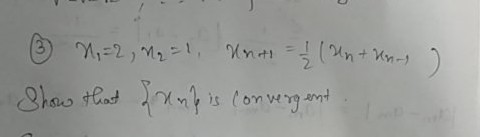 ③ x₁=2, x₂=1, xₙ₊₁ = ½ (xₙ + xₙ₋₁)
Show that {xₙ} is convergent.